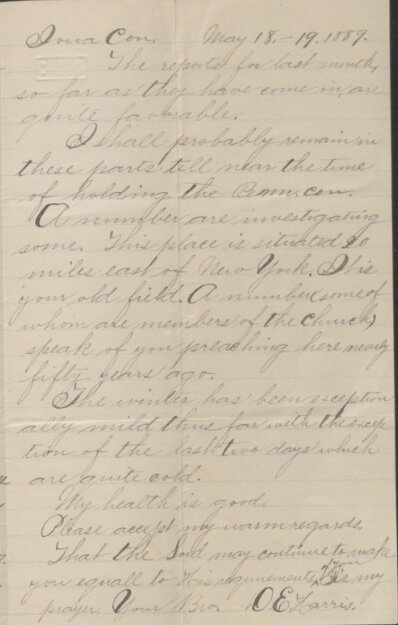 Iowa Con. May 18.-19. 1889.
The reports for last month,
so far as they have come in, are
quite favorable.
I shall probably remain in
these parts till near the time
of holding the Penn. con.
A number are investigating
some. This place is situated 20
miles east of New York. It is
your old field. A number (some of
whom are members of the church)
speak of you preaching here nearly
fifty years ago.
The winter has been exception
ally mild thus far with the excep
tion of the last two days which
are quite cold.
My health is good.
Please accept my warm regards,
That the Lord may continue to make
you equall to His requirements of you is my
prayer. Your Bro. O E Harris.